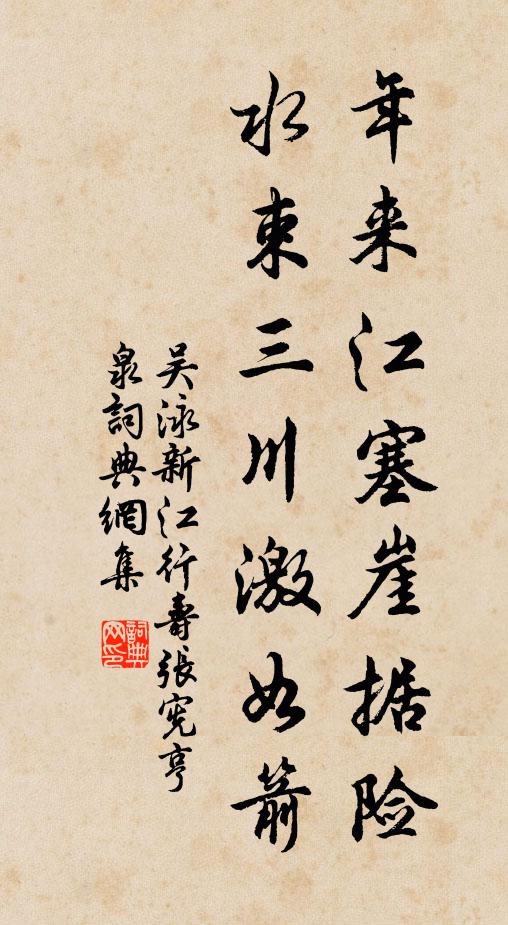 年来江塞崖据险
水束三川激如箭
吴泳新江行壽張宪亨
泉詞典網集
詞典网印